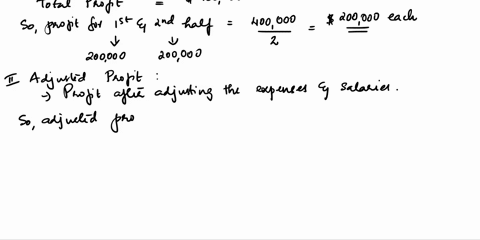 Total Profit =
So, profit for 1st & 2nd half = 400,000 / 2 = $ 200,000 each
↓ ↓
200,000 200,000
II Adjusted Profit :
→ Profit after adjusting the expenses & salaries.
So, adjusted pro